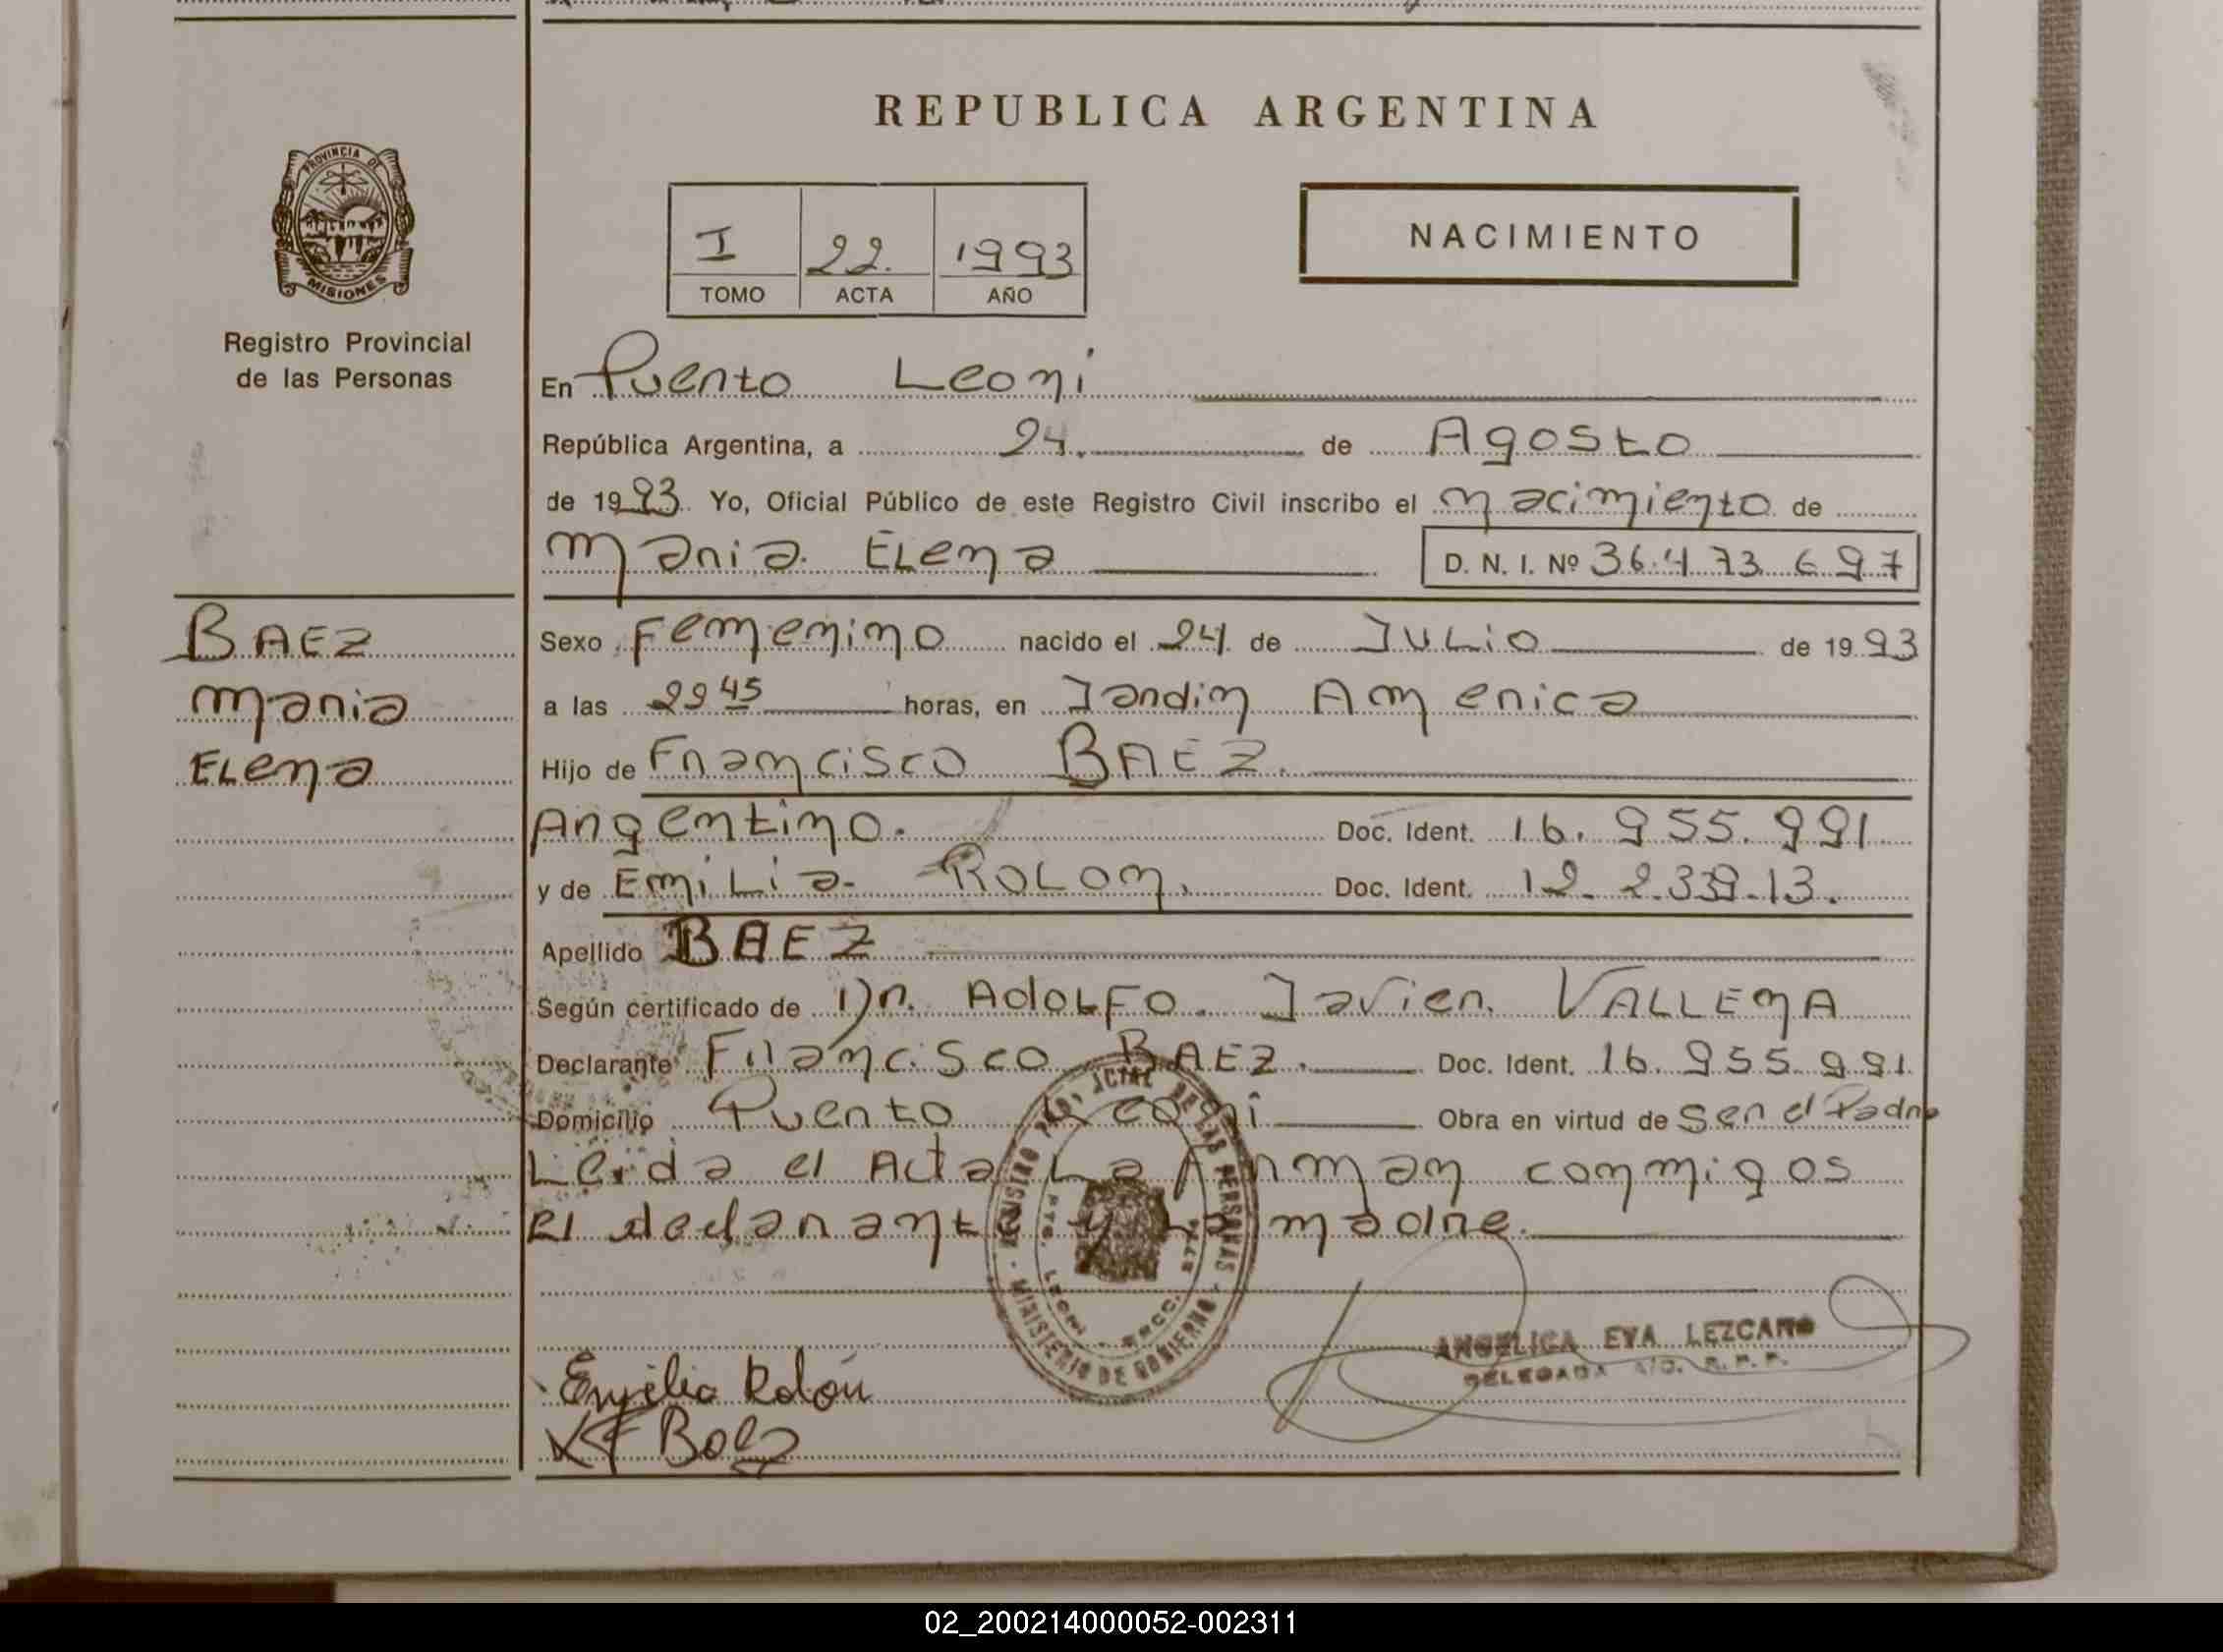 REPUBLICA ARGENTINA
PROVINCIA DE
MISIONES
Registro Provincial
de las Personas
I 22. 1993
TOMO ACTA AÑO
NACIMIENTO
En Puerto Leoni
República Argentina, a 24. de Agosto
de 1993. Yo, Oficial Público de este Registro Civil inscribo el nacimiento de
Maria Elena D. N. I. Nº 36.473.697
BAEZ
Maria
Elena
Sexo Femenino nacido el 24 de Julio de 1993
a las 22 45 horas, en Jardin America
Hijo de Francisco BAEZ.
Argentino. Doc. Ident. 16.955.991
y de Emilia ROLON, Doc. Ident.
Apellido BAEZ
Según certificado de Dr. Adolfo Javier VALLENA
Declarante Francisco BAEZ. Doc. Ident. 16.955.991
Domicilio Puerto Leoni Obra en virtud de ser el Padre
Leida el Acta La firman conmigos
el declarante y la madre.
MINISTERIO DE GOBIERNO
DE LAS PERSONAS
ANGELICA EVA LEZCANO
DELEGADA A/C. R. P. P.
Emilia Rolón
F Baez
02_200214000052-002311